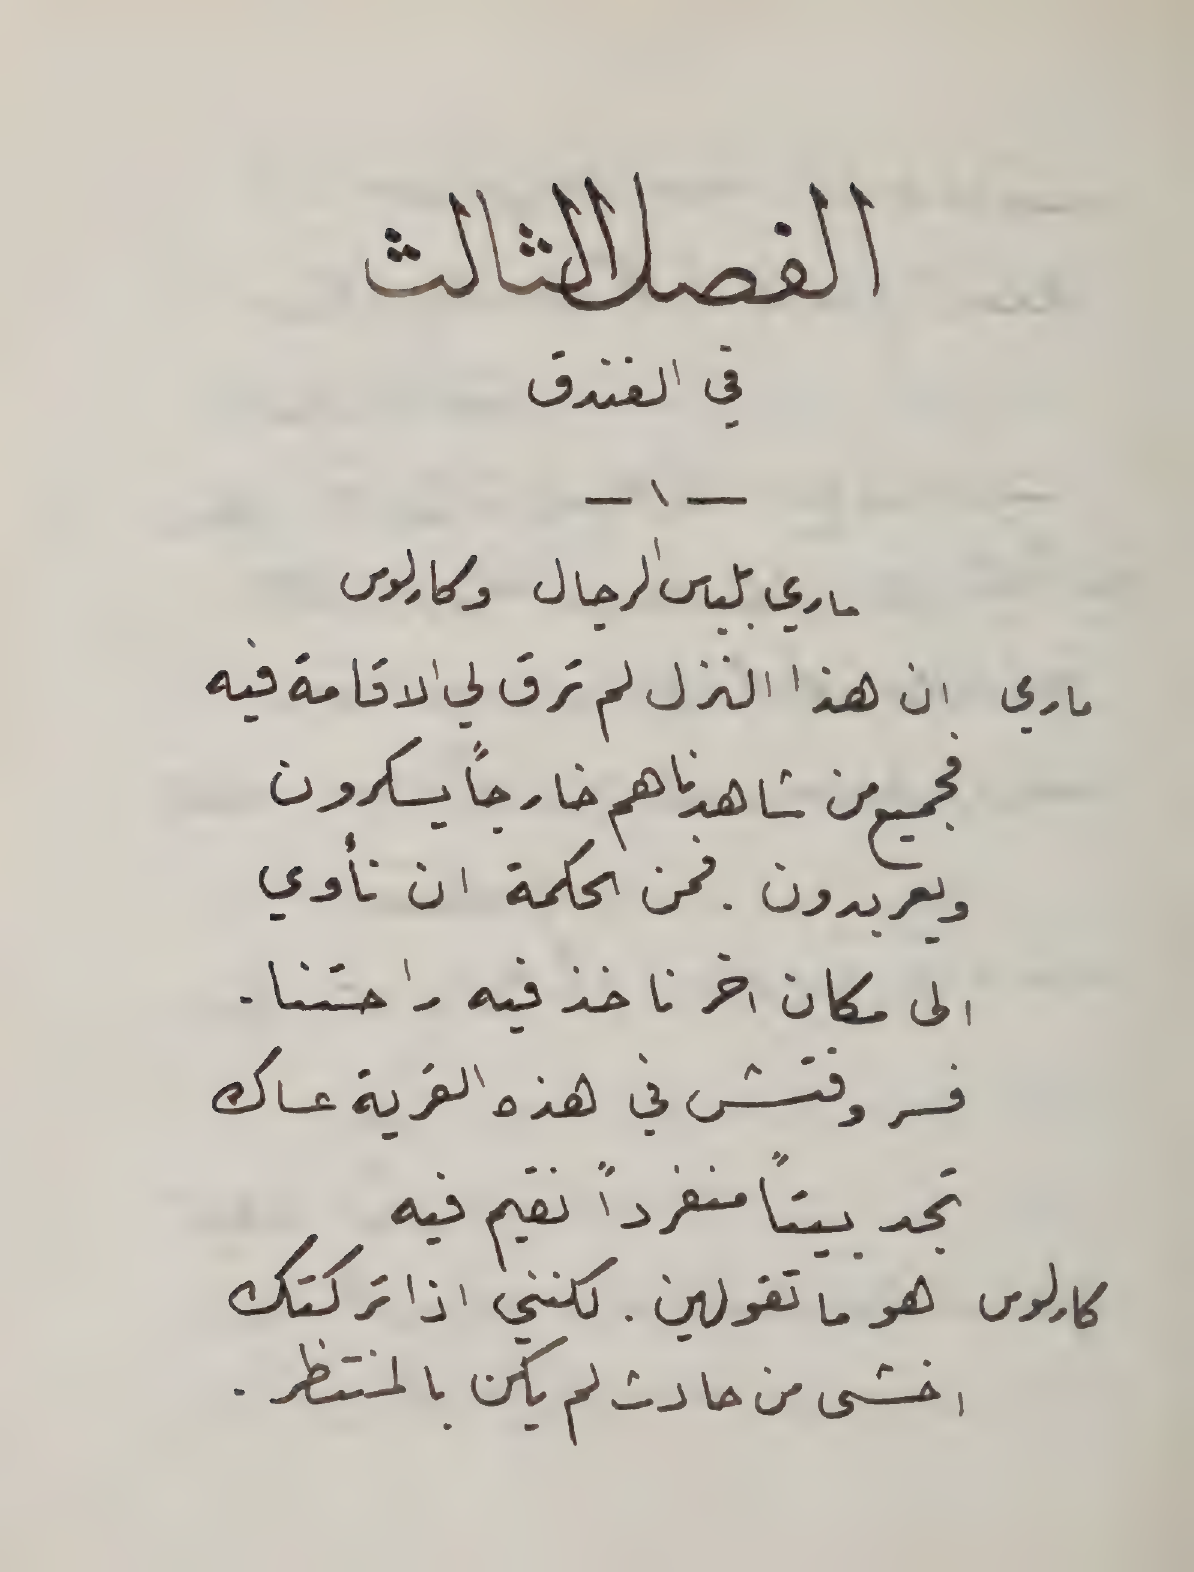 الفصل الثالث
في الفندق
— ١ —
ماري بلباس الرجال وكارلوس
ماري ان هذا النزل لم ترق لي الاقامة فيه
فجميع من شاهدناهم خارجاً يسكرون
ويعربدون . فمن الحكمة ان نأوي
الى مكان اخر ناخذ فيه راحتنا .
فسر وفتش في هذه القرية عساك
تجد بيتاً منفرداً نقيم فيه
كارلوس هو ما تقولين . لكنني اذا تركتك
اخشى من حادث لم يكن بالمنتظر .